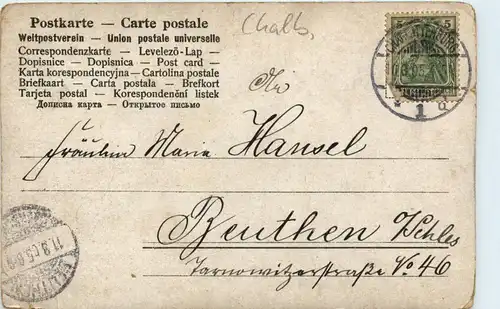 Postkarte — Carte postale
Weltpostverein — Union postale universelle
Correspondenzkarte — Levelező-Lap
Dopisnice — Dopisnica — Post card —
Karta korespondencyjna — Cartolina postale
Briefkaart — Carta postala — Brefkort
Tarjeta postal — Korespondenční lístek
Дописна карта — Открытое письмо
5
1
An
Fräulein Maria Hansel
Beuthen O/Schles
Tarnowitzerstraße No 46